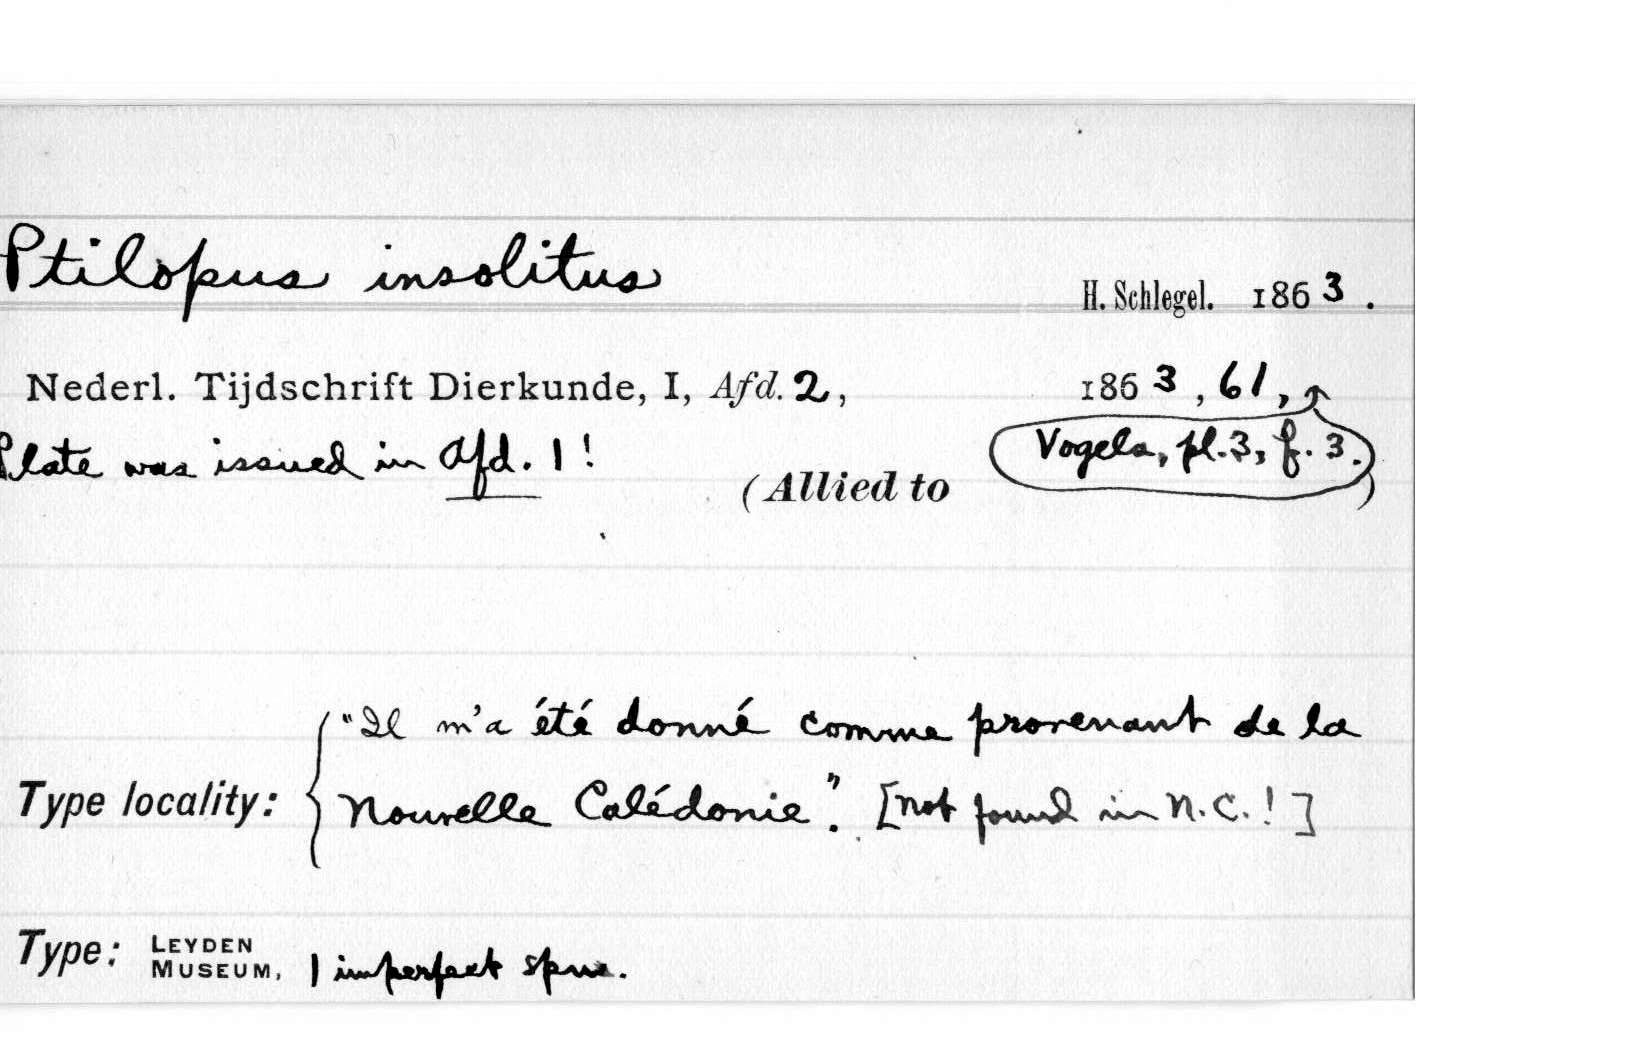 Ptilopus insolitus
H. Schlegel. 1863.
Nederl. Tijdschrift Dierkunde, I, Afd. 2, 1863, 61,
Vogels, pl. 3, f. 3.
Plate was issued in Afd. 1!
(Allied to )
Type locality: { "Il m'a été donné comme provenant de la
Nouvelle Calédonie". [Not found in N.C.!]
Type: LEYDEN MUSEUM, 1 imperfect spm.